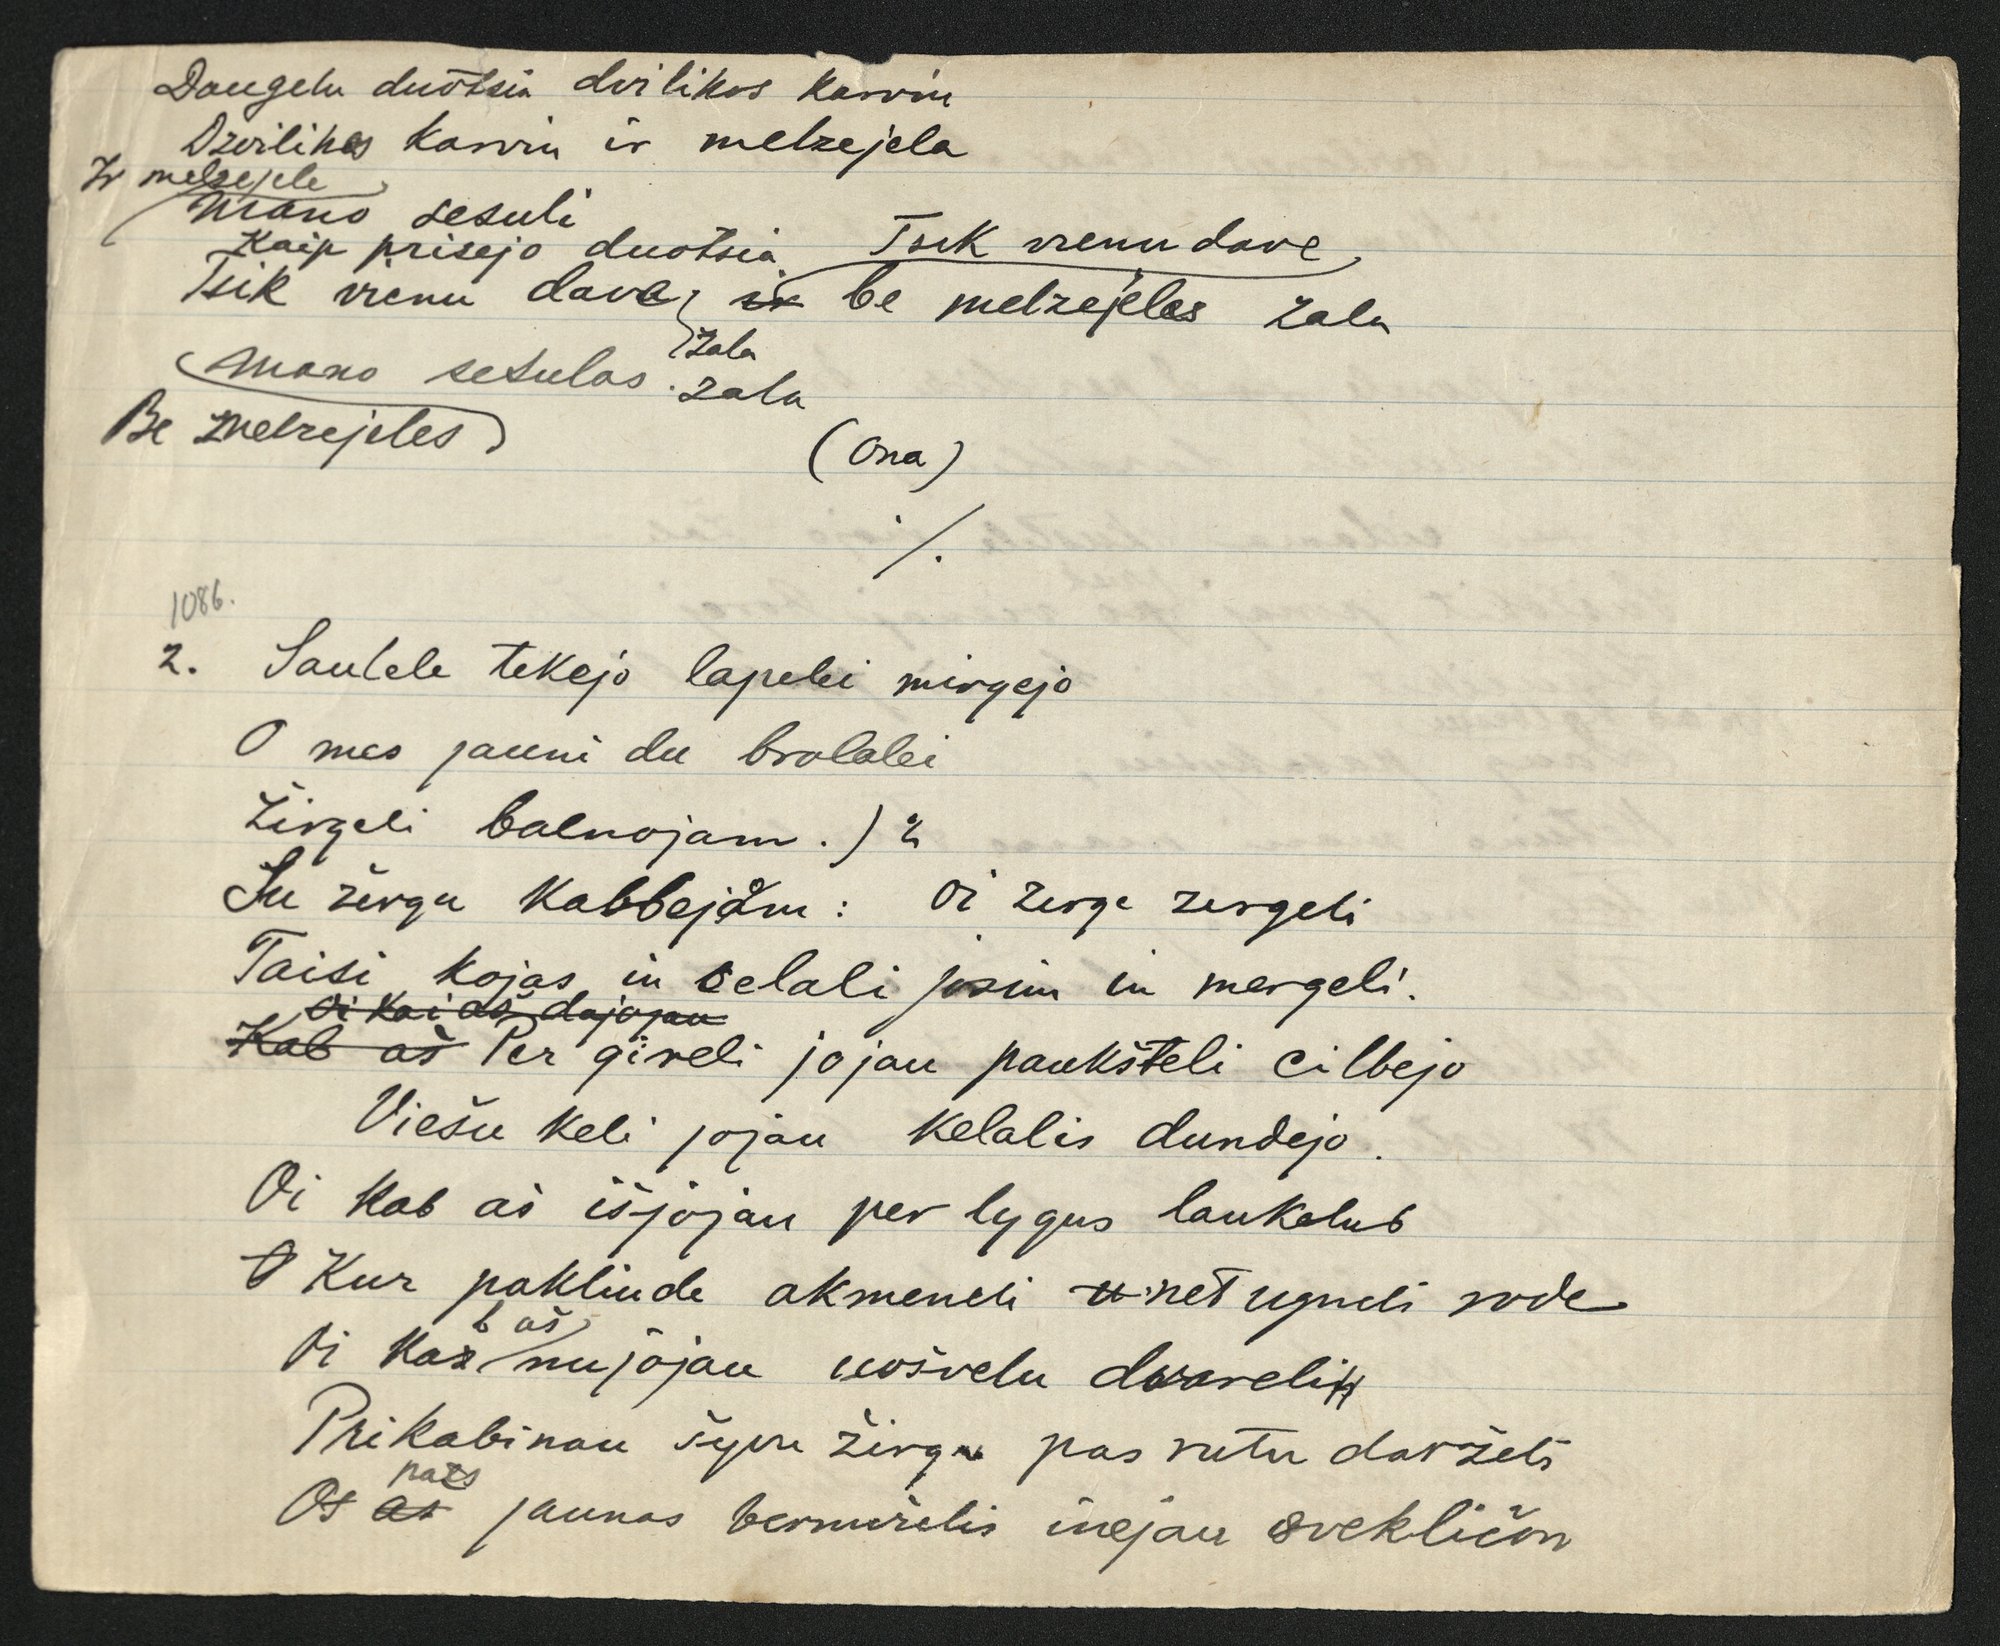 Daugelu duotsia dvilikos karviu
Dzvilikos karviu ir melzejela
Ir melzejele
Mano sesuli
Kaip prisejo duotsia Tsik vienu dave
Tsik vienu dava, ir be melzejelas zalu
zala
Mano sesulas. zalu
Be melzejeles
(Ona)
./.
1086.
2. Saulele tekejo lapelei mirgejo
O mes jauni du brolalei
Žirgeli balnojam.)
Su žirgu kalbejom: Oi zirge zirgeli
Taisi kojas in celali josim in mergeli.
Oi kai aš dajojau
Kab aš Per gireli jojau paukšteli cilbejo
Viešu keli jojau kelalis dundejo.
Oi kab aš išjojau per lygus laukelus
O Kur pakliude akmeneli u net ugneli rode
b aš
Oi kaz nujojau uošvelu dvareli
Prikabinau šyvu žirgu pas rutu darželi
pats
O aš jaunas bernuželis inejau svekličon